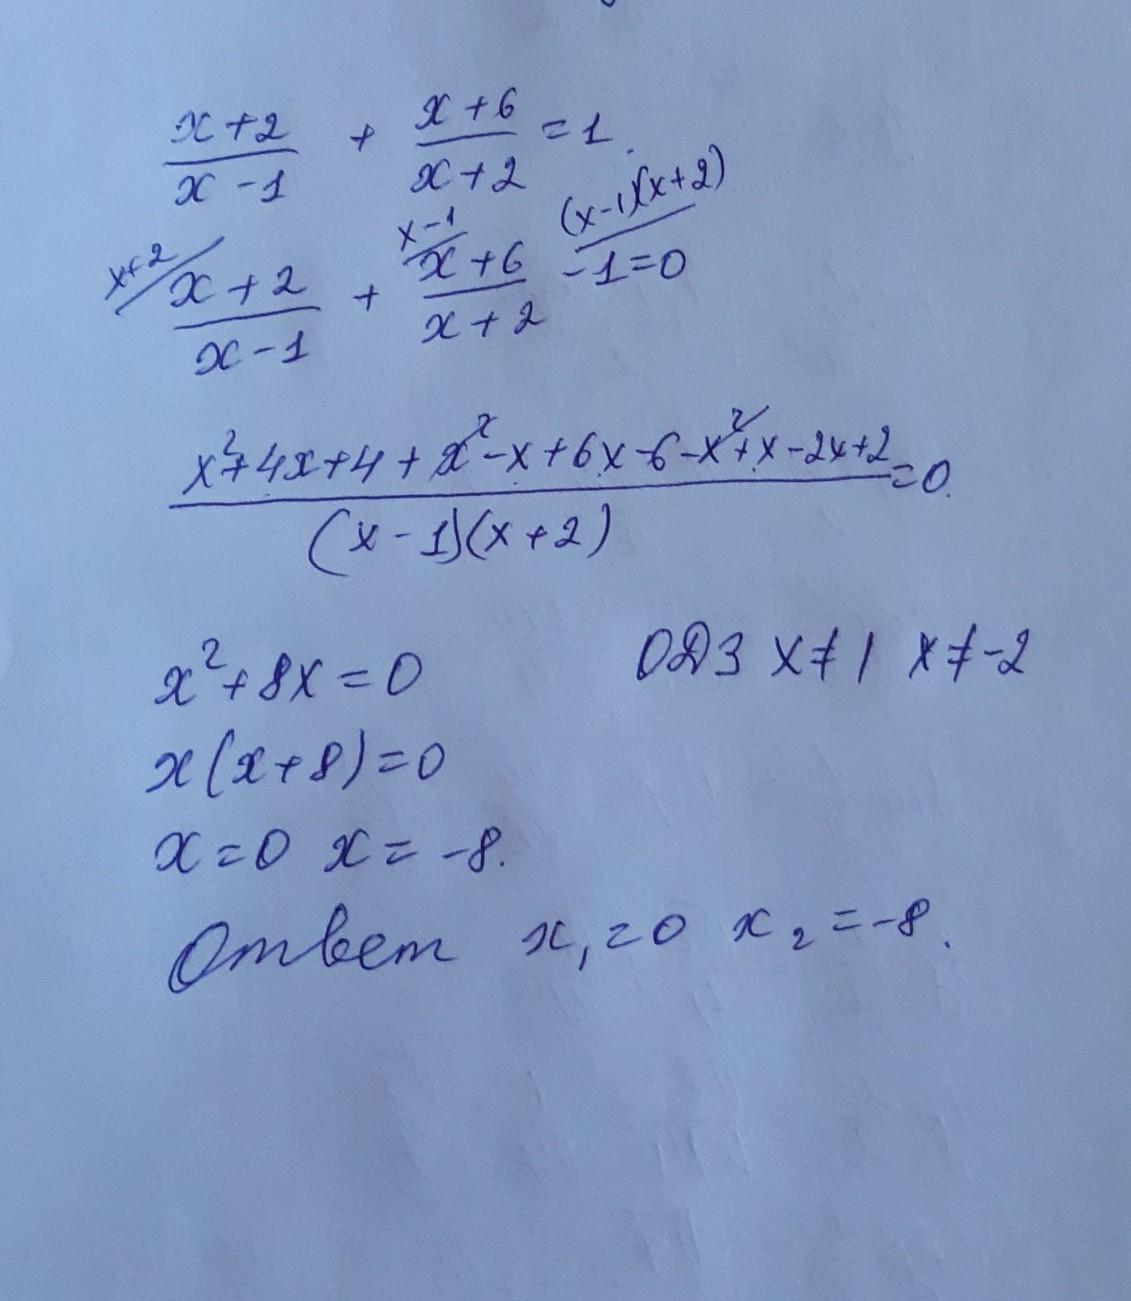 (x+2)/(x-1) + (x+6)/(x+2) = 1.
x+2/ (x+2)/(x-1) + x-1/ (x+6)/(x+2) - (x-1)(x+2)/ 1 = 0
(x²+4x+4+x²-x+6x-6-x²+x-2x+2)/((x-1)(x+2)) = 0.
x²+8x=0 ОДЗ x≠1 x≠-2
x(x+8)=0
x=0 x=-8.
Ответ x₁=0 x₂=-8.